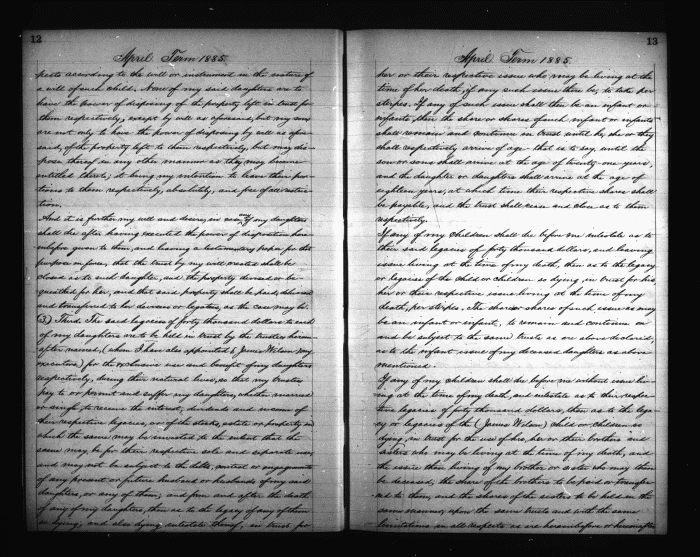 12
April Term 1885.
pects according to the will or instrument in the nature of
a will of such child. None of my said daughters are to
have the power of disposing of the property left in trust for
them respectively, except by will as aforesaid, but my sons
are not only to have the power of disposing by will as afore-
said, of the property left to them respectively, but may dis-
pose thereof in any other manner as they may become
entitled thereto, it being my intention to leave their por-
tions to them respectively, absolutely, and free of all restric-
tion.
And it is further my will and desire, in case any of my daughters
shall die after having executed the power of disposition here-
inbefore given to them, and leaving a testamentary paper for the
purpose in force, that the trust by my will created shall be
closed as to such daughter, and the property devised or be-
queathed for her, and that said property shall be paid, delivered
and transferred to her devisees or legatees, as the case may be.
(3) Third. The said legacies of forty thousand dollars to each
of my daughters are to be held in trust by the trustees herein
after named, (whom I have also appointed & James Wilson my
executors) for the exclusive use and benefit of my daughters
respectively, during their natural lives, so that my trustees
pay to or permit and suffer my daughters, whether married
or single, to receive the interest, dividends and income of
their respective legacies, or of the stocks, estate or property in
which the same may be invested to the intent that the
same may be for their respective sole and separate use,
and may not be subject to the debts, control or engagements
of any present or future husband or husbands of my said
daughters, or any of them; and from and after the death
of any of my daughters, then as to the legacy of any of them
so dying, and also dying intestate thereof, in trust for
13
April Term 1885.
her or their respective issue who may be living at the
time of her death, if any such issue there be, to take per
stirpes. If any of such issue shall then be an infant or
infants, then the share or shares of such infant or infants
shall remain and continue in trust until he, she or they
shall respectively arrive of age - that is to say, until the
son or sons shall arrive at the age of twenty one years,
and the daughter or daughters shall arrive at the age of
eighteen years, at which time their respective shares shall
be payable, and the trust shall cease and close as to them
respectively.
If any of my children shall die before me intestate as to
their said legacies of forty thousand dollars, and leaving
issue living at the time of my death, then as to the legacy
or legacies of the child or children so dying, in trust for his,
her or their respective issue living at the time of my
death, per stirpes. The share or shares of such issue as may
be an infant or infants, to remain and continue on
and be subject to the same trusts as are above declared,
as to the infant issue of my deceased daughters as above
mentioned.
If any of my children shall die before me without issue liv-
ing at the time of my death, and intestate as to their respec-
tive legacies of forty thousand dollars, then as to the lega-
cy or legacies of the (James Wilson) child or children so
dying, in trust for the use of his, her or their brothers and
sisters who may be living at the time of my death, and
the issue then living of any brother or sister who may then
be deceased, the share of the brothers to be paid or transfer-
ed to them, and the shares of the sisters to be held in the
same manner, upon the same trusts and with the same
limitations in all respects as are hereinbefore or hereinafter